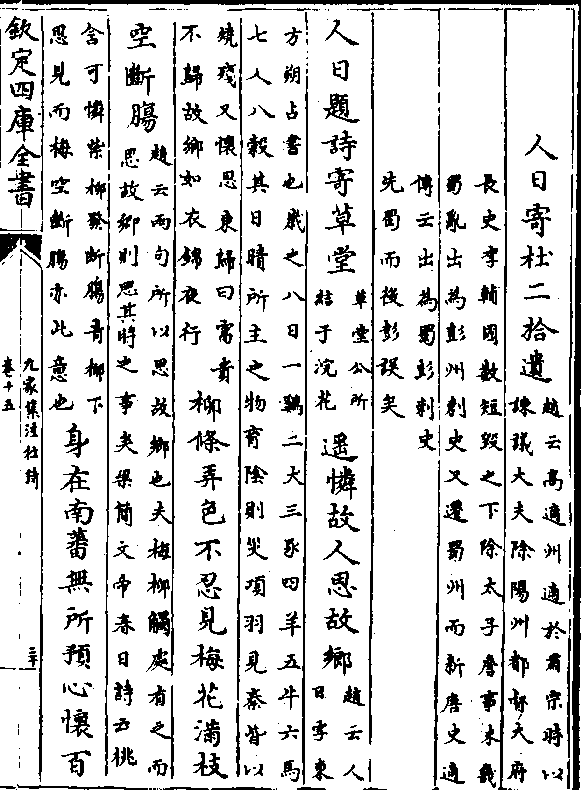 人日寄杜二拾遺趙云高適州適於肅宗時以
諫議大夫除陽州都督大府
長史李輔國數短毀之下除太子詹事未幾
蜀亂出為彭州刺史又遷蜀州而新唐史適
傳云出為蜀彭刺史
先蜀而後彭誤矣
人日題詩寄草堂草堂公所
結于浣花遥憐故人思故鄉趙云人
日字東
方朔占書也歲之八日一鷄二犬三豕四羊五牛六馬
七人八穀其日晴所主之物育陰則災項羽見秦皆以
燒殘又懷思東歸曰富貴
不歸故鄉如衣錦夜行柳條弄色不忍見梅花滿枝
空斷腸趙云兩句所以思故鄉也夫梅柳觸處有之而
思故鄉則思其時之事矣梁簡文帝春日詩云桃
含可憐紫柳發斷腸青柳下
思見而梅空斷腸亦此意也身在南蕃無所預心懷百
欽定四庫全書
九家集注杜詩
卷十五
三十